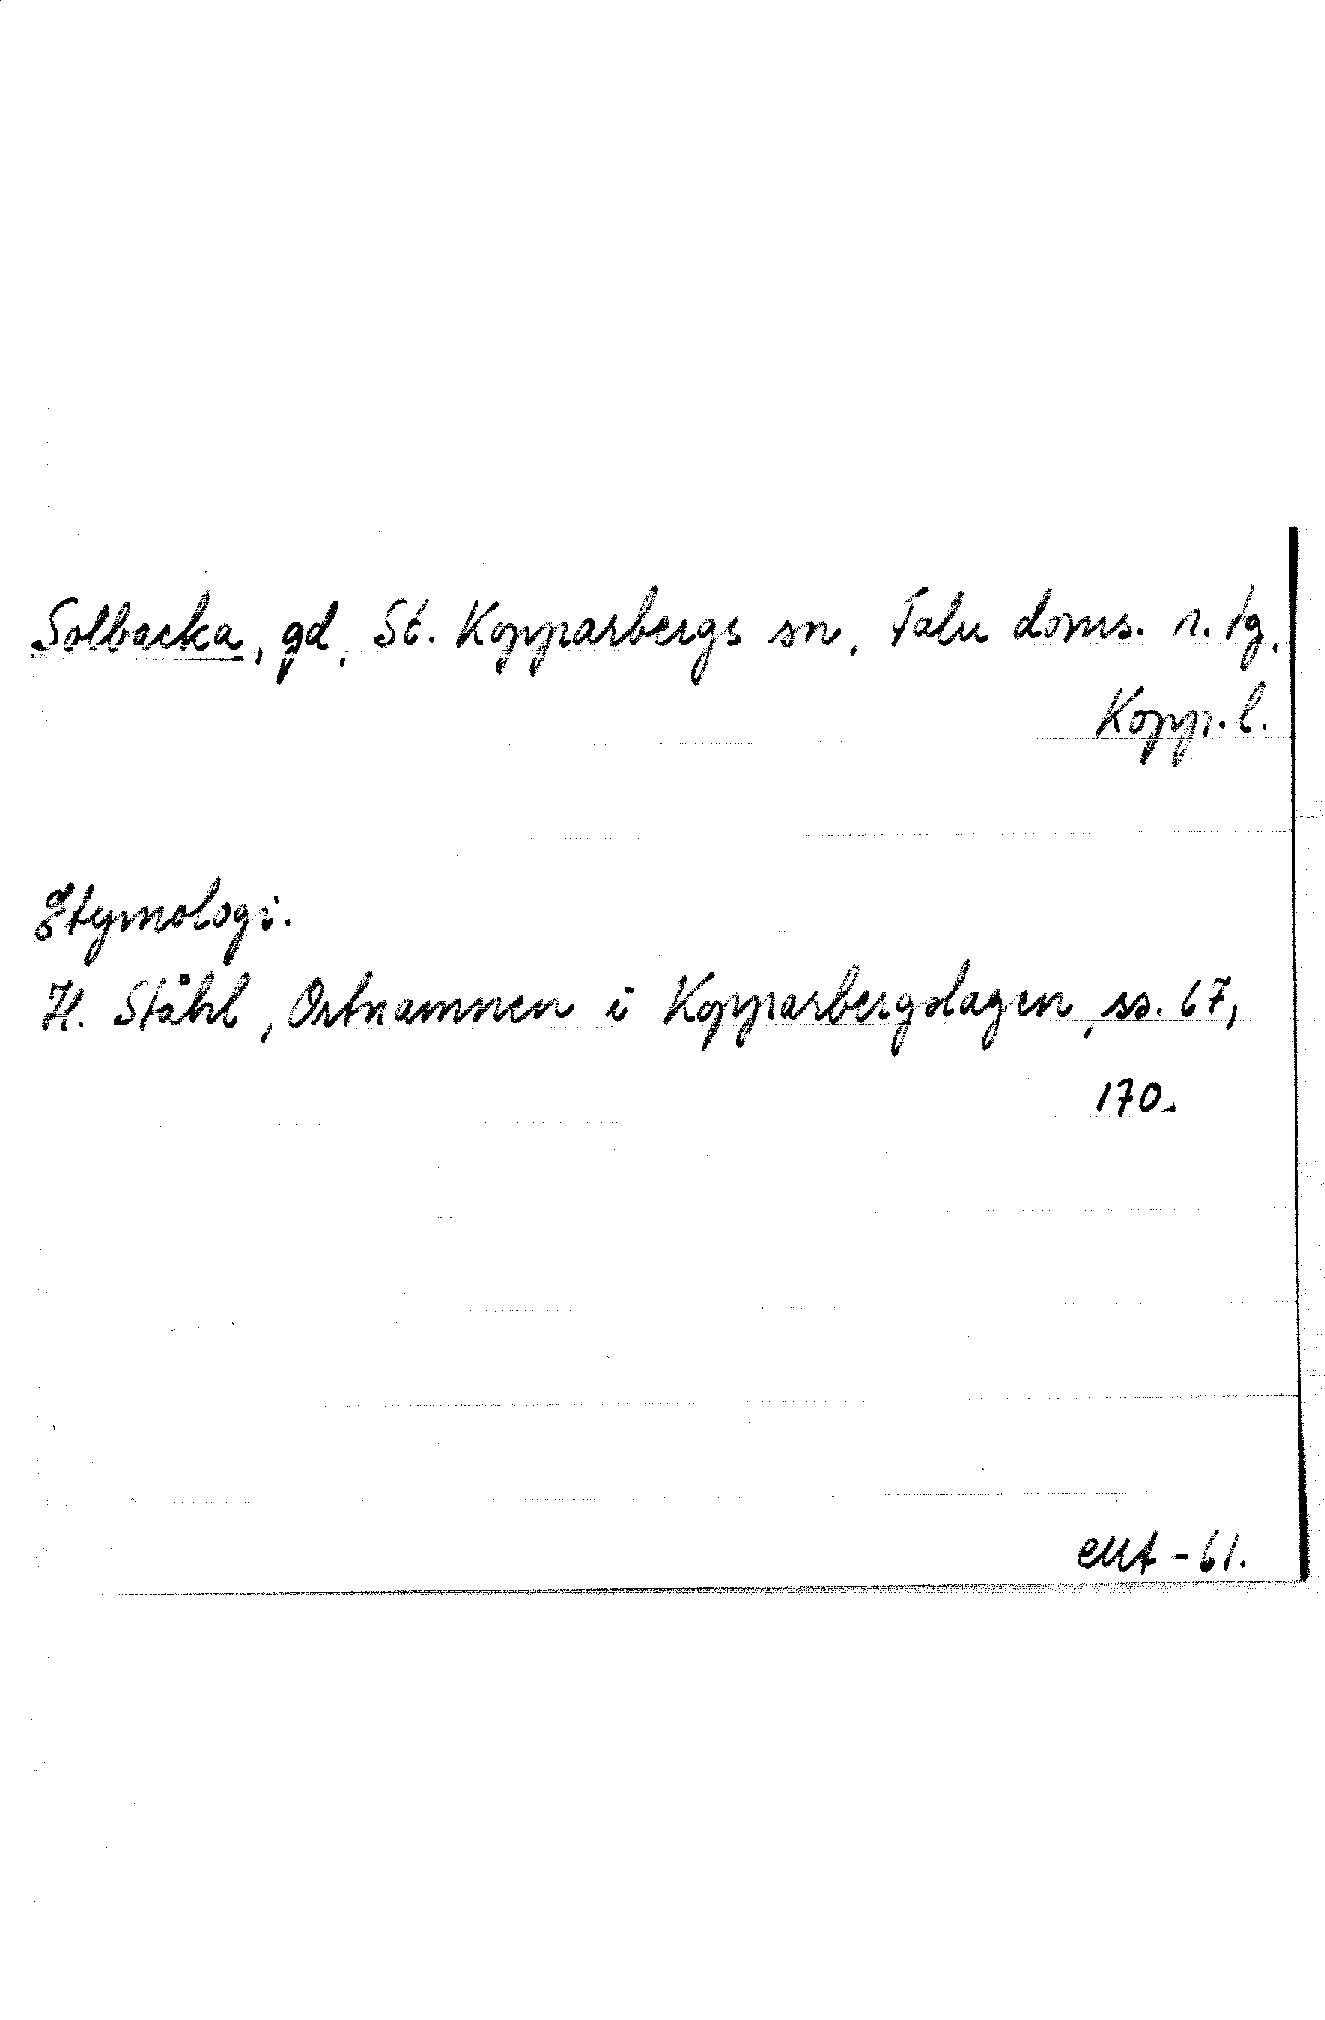 Solbacka, gd, St. Kopparbergs sn, Falu doms. n. tg,
Kopp. l.
Etymologi.
H. Ståhl, Ortnamnen i Kopparbergslagen, ss. 67,
170.
-61.